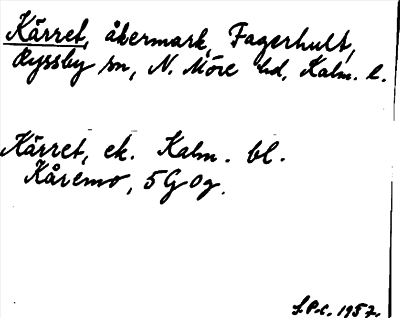 Kärret, åkermark, Fagerhult,
Ryssby sn, N. Möre hd, Kalm. l.
Kärret, ek. Kalm. bl.
Kåremo, 5G0g.
S.P-c. 1957.